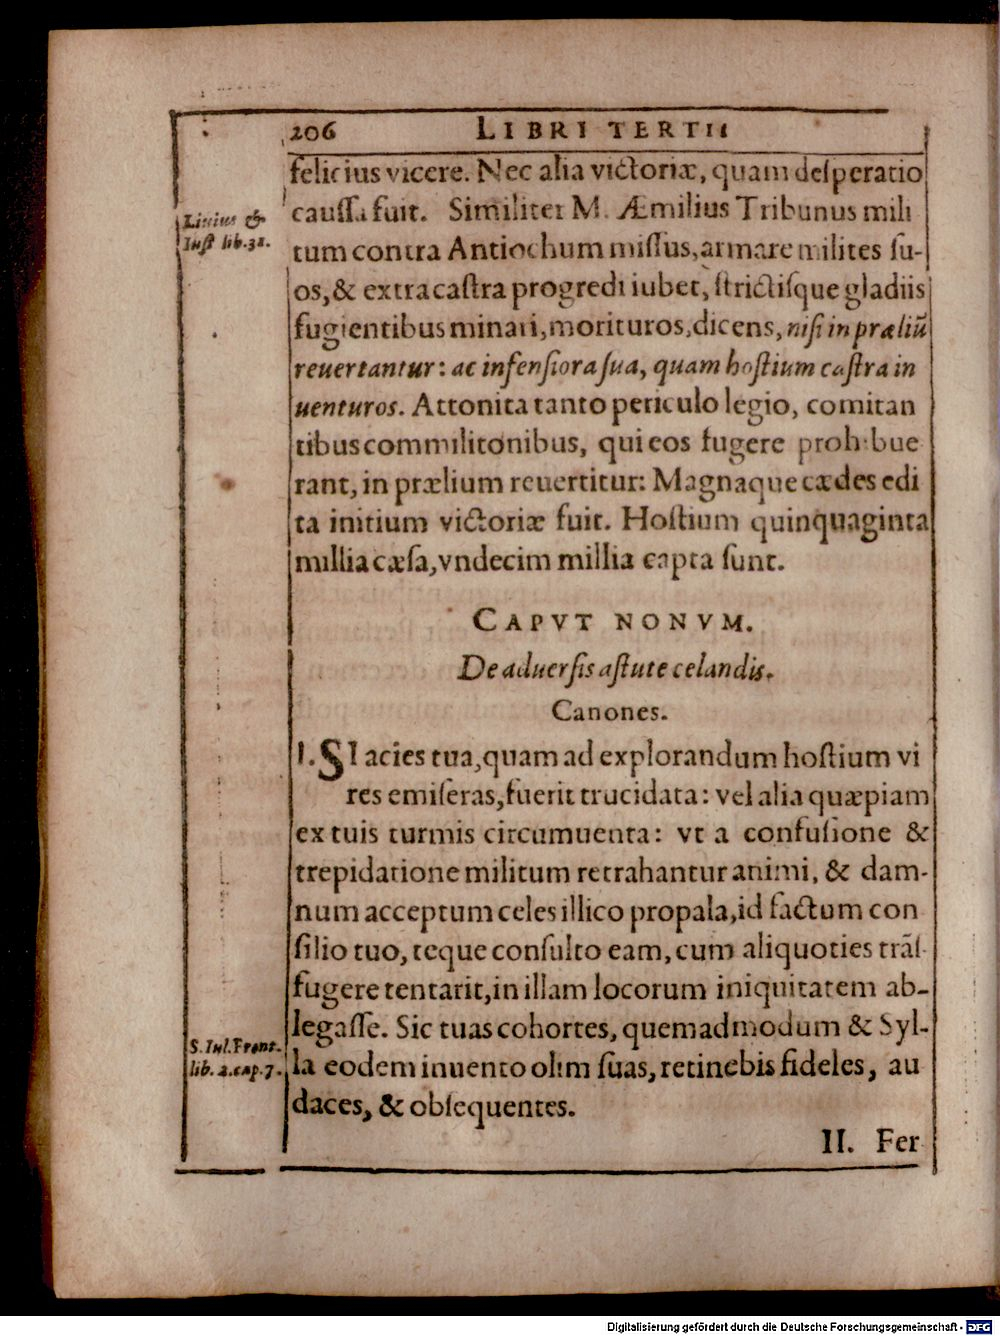 206 LIBRI TERTII
felicius vicere. Nec alia victoriæ, quam desperatio
caussa fuit. Similiter M. Æmilius Tribunus mili
Livius &
Iust lib. 31.
tum contra Antiochum missus, armare milites su-
os, & extra castra progredi iubet, strictisque gladiis
fugientibus minari, morituros, dicens, nisi in præliũ
reuertantur: ac infensiora sua, quam hostium castra in
uenturos. Attonita tanto periculo legio, comitan
tibus commilitonibus, qui eos fugere prohibue
rant, in prælium reuertitur: Magnaque cædes edi
ta initium victoriæ fuit. Hostium quinquaginta
millia cæsa, vndecim millia capta sunt.
CAPVT NONVM.
De aduersis astute celandis.
Canones.
I. SI acies tua, quam ad explorandum hostium vi
res emiseras, fuerit trucidata: vel alia quæpiam
ex tuis turmis circumuenta: vt a confusione &
trepidatione militum retrahantur animi, & dam-
num acceptum celes illico propala, id factum con
silio tuo, teque consulto eam, cum aliquoties trãs
fugere tentarit, in illam locorum iniquitatem ab-
legasse. Sic tuas cohortes, quemadmodum & Syl-
S. Iul. Front.
lib. 2. cap. 7.
la eodem inuento olim suas, retinebis fideles, au
daces, & obsequentes.
II. Fer
Digitalisierung gefördert durch die Deutsche Forschungsgemeinschaft - DFG